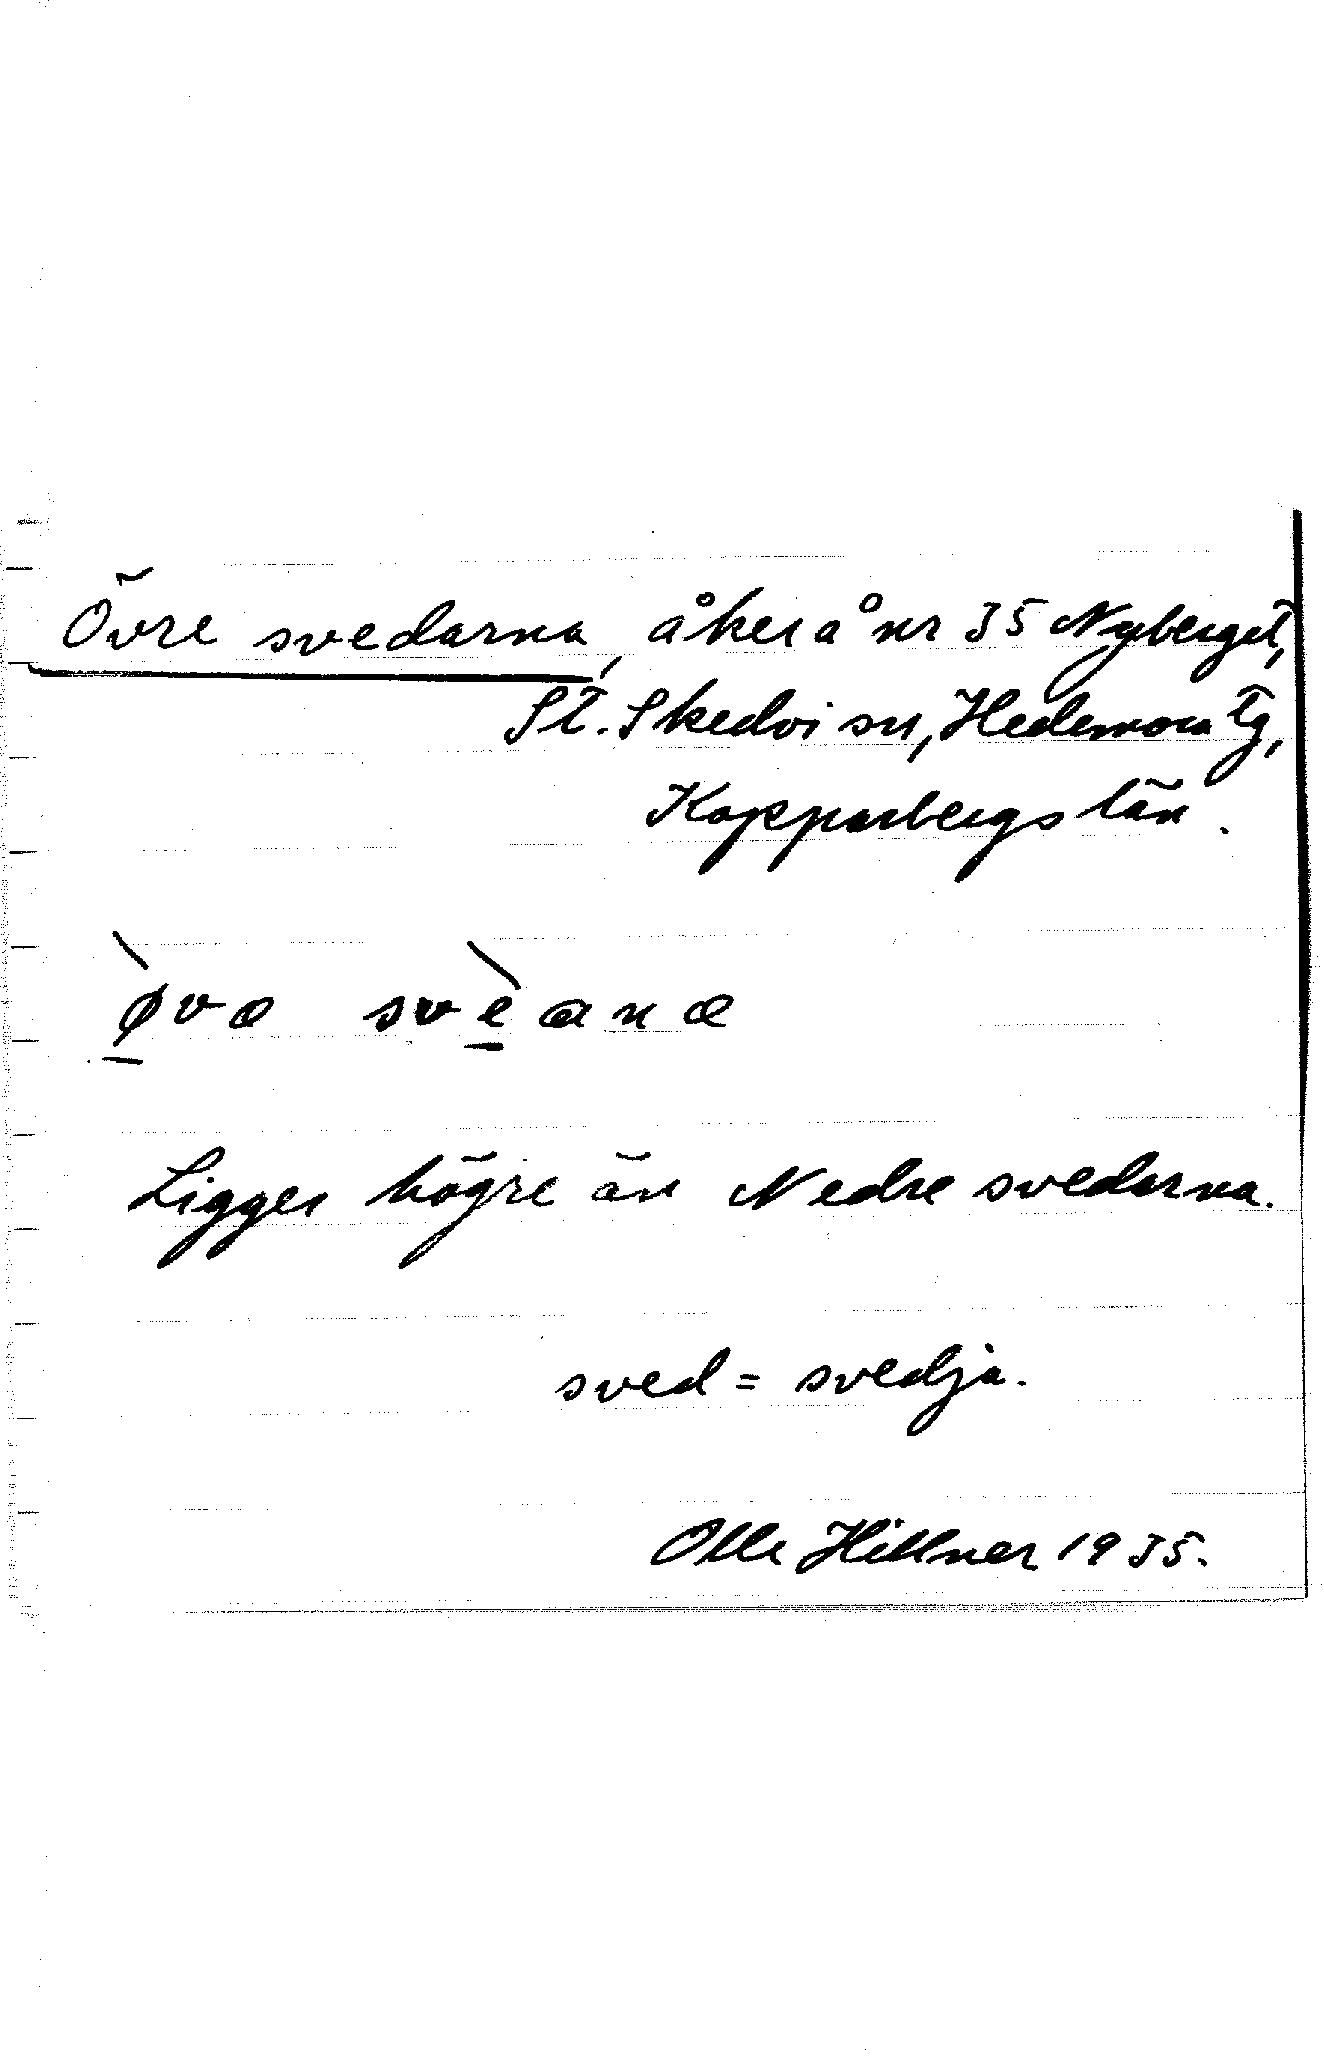 Övre svedarna, åker å nr 35 Nyberget,
St. Skedvi sn, Hedemora tg,
Kopparbergs län.
ø̱̀va svè̱ana
Ligger högre än Nedre svedarna.
sved = svedja.
Olle Hillner 1935.